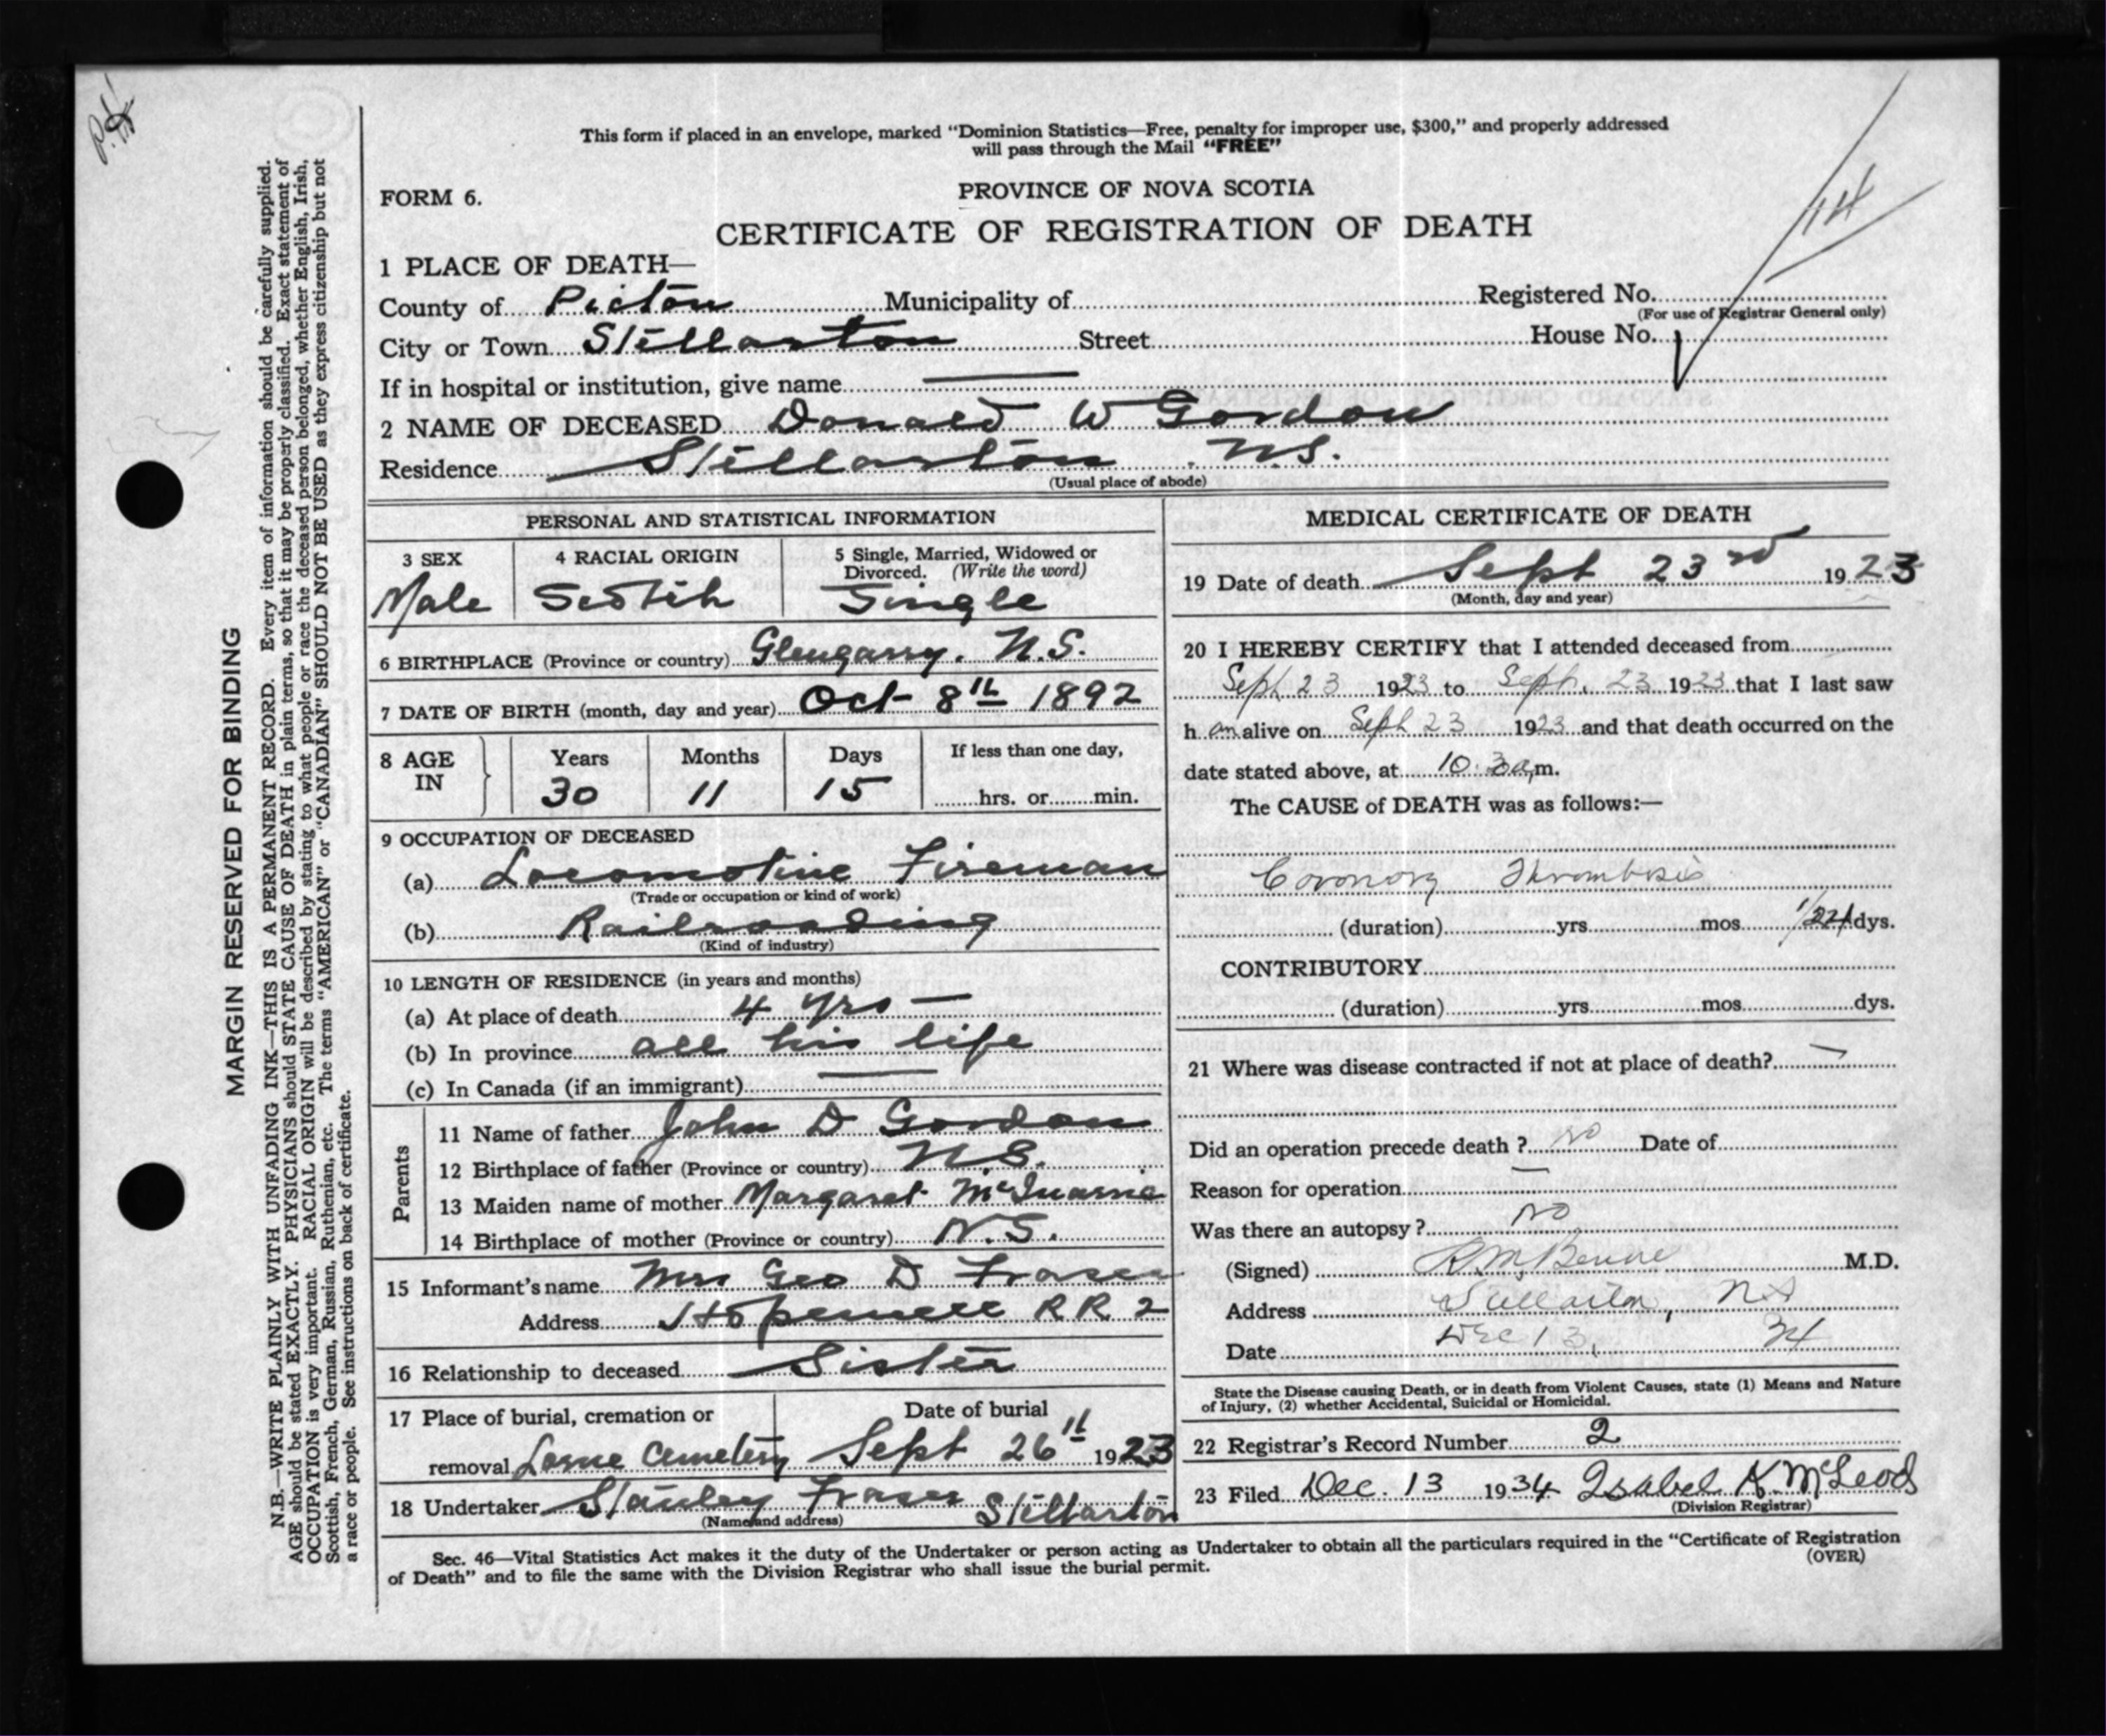 This form if placed in an envelope, marked "Dominion Statistics—Free, penalty for improper use, $300," and properly addressed
will pass through the Mail "FREE"
FORM 6.
PROVINCE OF NOVA SCOTIA
CERTIFICATE OF REGISTRATION OF DEATH
114
1 PLACE OF DEATH—
County of Pictou Municipality of Registered No.
(For use of Registrar General only)
City or Town Stellarton Street House No.
If in hospital or institution, give name —
2 NAME OF DECEASED Donald W Gordon
Residence Stellarton N.S.
(Usual place of abode)
MARGIN RESERVED FOR BINDING
N.B.—WRITE PLAINLY WITH UNFADING INK—THIS IS A PERMANENT RECORD. Every item of information should be carefully supplied.
AGE should be stated EXACTLY. PHYSICIANS should STATE CAUSE OF DEATH in plain terms, so that it may be properly classified. Exact statement of
OCCUPATION is very important. RACIAL ORIGIN will be described by stating to what people or race the deceased person belonged, whether English, Irish,
Scottish, French, German, Russian, Ruthenian, etc. The terms "AMERICAN" or "CANADIAN" SHOULD NOT BE USED as they express citizenship but not
a race or people. See instructions on back of certificate.
PERSONAL AND STATISTICAL INFORMATION
3 SEX 4 RACIAL ORIGIN 5 Single, Married, Widowed or
Divorced. (Write the word)
Male Scotch Single
6 BIRTHPLACE (Province or country) Glengarry. N.S.
7 DATE OF BIRTH (month, day and year) Oct 8th 1892
8 AGE IN Years Months Days If less than one day,
30 11 15 hrs. or min.
9 OCCUPATION OF DECEASED
(a) Locomotive Fireman
(Trade or occupation or kind of work)
(b) Railroading
(Kind of industry)
10 LENGTH OF RESIDENCE (in years and months)
(a) At place of death 4 yrs —
(b) In province all his life
(c) In Canada (if an immigrant) —
Parents
11 Name of father John D Gordon
12 Birthplace of father (Province or country) N.S.
13 Maiden name of mother Margaret
14 Birthplace of mother (Province or country) N.S.
15 Informant's name Mrs Geo D Fraser
Address Hopewell R R 2
16 Relationship to deceased Sister
17 Place of burial, cremation or Date of burial
removal Lorne Cemetery Sept 26th 1923
18 Undertaker Stanley Fraser Stellarton
(Name and address)
MEDICAL CERTIFICATE OF DEATH
19 Date of death Sept 23rd 1923
(Month, day and year)
20 I HEREBY CERTIFY that I attended deceased from
Sept 23 1923 to Sept. 23 1923 that I last saw
h im alive on Sept 23 1923 and that death occurred on the
date stated above, at 10.30 a m.
The CAUSE of DEATH was as follows:—
Coronory Thrombosis
(duration) yrs mos 1/24 dys.
CONTRIBUTORY
(duration) yrs mos dys.
21 Where was disease contracted if not at place of death? —
Did an operation precede death ? no Date of
Reason for operation —
Was there an autopsy ? no
(Signed) M.D.
Address Stellarton, NS
Date Dec 13, 34
State the Disease causing Death, or in death from Violent Causes, state (1) Means and Nature
of Injury, (2) whether Accidental, Suicidal or Homicidal.
22 Registrar's Record Number 2
23 Filed Dec. 13 1934 Isabel K. McLeod
(Division Registrar)
Sec. 46—Vital Statistics Act makes it the duty of the Undertaker or person acting as Undertaker to obtain all the particulars required in the "Certificate of Registration
of Death" and to file the same with the Division Registrar who shall issue the burial permit.
(OVER)